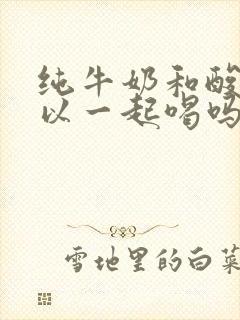 纯牛奶和酸
以一起喝吗
雪地里的白菜